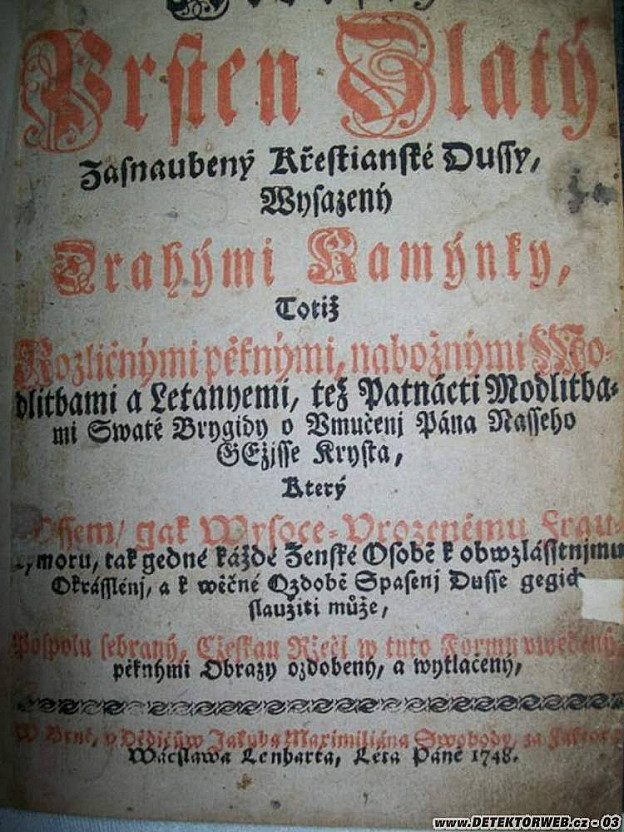 Prsten Zlatý
Zasnaubený Křestianské Dussy,
Wysazený
Drahými Kamýnky,
Totiž
Rozličnými pěknými, nabožnými Mo-
dlitbami a Letanyemi, též Patnácti Modlitba-
mi Swaté Brygidy o Vmučenj Pána Nasseho
GEžjsse Krysta,
Který
Wssem/ gak Wysoce-Vrozenému Frau-
cymoru, tak gedné káždé Ženské Osobě k obwzlásstnjmu
Okrásslénj, a k wěčné Ozdobě Spasenj Dusse gegich
slaužiti může,
Pospolu sebraný, Cžeskau Ržečj w tuto Formu vwedený,
pěknými Obrazy ozdobený, a wytlačený,
W Brně, v Dědičůw Jakuba Maximiliána Swobody, za Faktora
Wácslawa Lenharta, Léta Páně 1748.
www.DETEKTORWEB.cz - 03